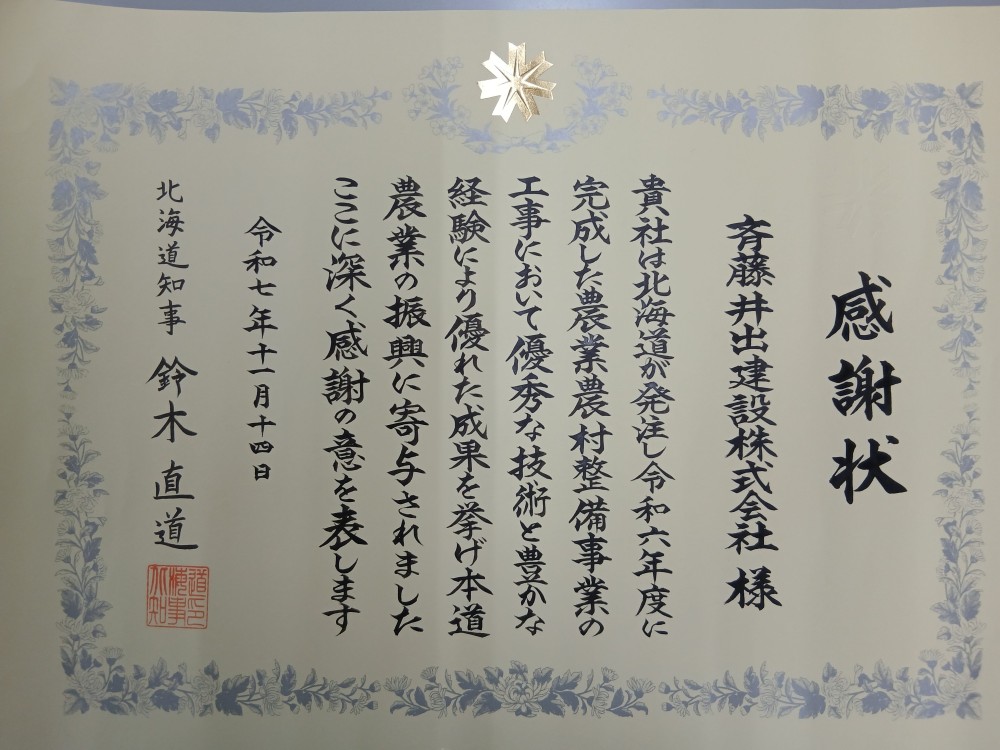 感謝状
斉藤井出建設株式会社 様
貴社は北海道が発注し令和六年度に
完成した農業農村整備事業の
工事において優秀な技術と豊かな
経験により優れた成果を挙げ本道
農業の振興に寄与されました
ここに深く感謝の意を表します
令和七年十一月十四日
北海道知事 鈴木直道